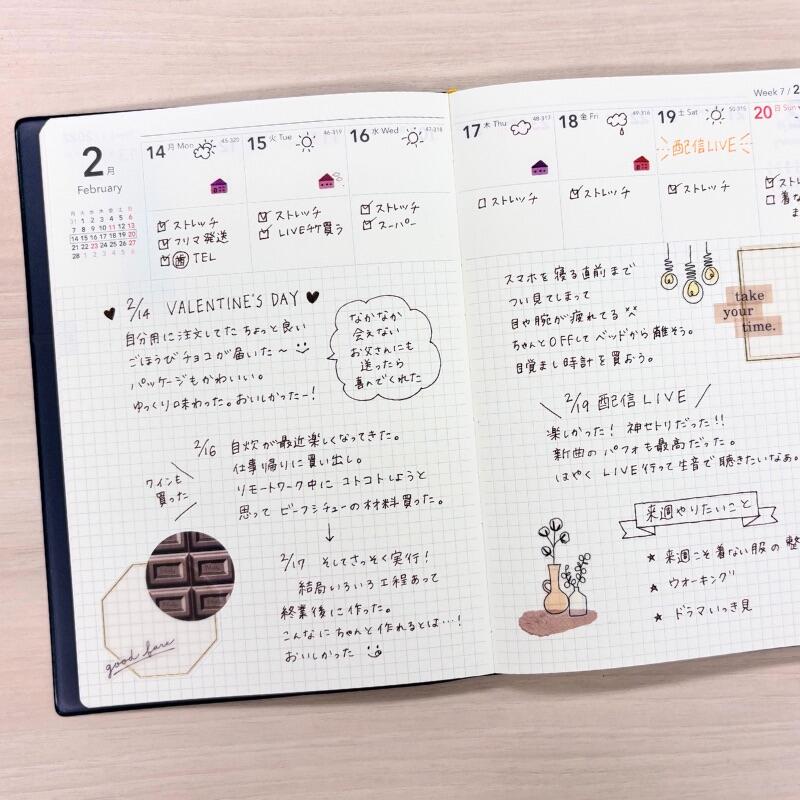 Week 7 / 2
2月
February
月 火 水 木 金 土 日
31 1 2 3 4 5 6
7 8 9 10 11 12 13
14 15 16 17 18 19 20
21 22 23 24 25 26 27
28 1 2 3 4 5 6
14 月 Mon 45-320
15 火 Tue 46-319
16 水 Wed 47-318
17 木 Thu 48-317
18 金 Fri 49-316
19 土 Sat 50-315
20 日 Sun
配信LIVE
ストレッチ
フリマ発送
歯 TEL
ストレッチ
LIVEチケ買う
ストレッチ
スーパー
ストレッチ
ストレッチ
ストレッチ
ストレ
着な
ま
2/14 VALENTINE'S DAY
自分用に注文してた ちょっと良い
ごほうびチョコが届いた〜
パッケージもかわいい。
ゆっくり味わった。おいしかったー!
なかなか
会えない
お父さんにも
送ったら
喜んでくれた
2/16 自炊が最近楽しくなってきた。
仕事帰りに買い出し。
リモートワーク中に コトコトしようと
思って ビーフシチューの材料買った。
ワインも
買った
↓
2/17 そしてさっそく実行!
結局いろいろ工程あって
終業後に作った。
こんなにちゃんと作れるとは…!
おいしかった
good fare
スマホを寝る直前まで
つい見てしまって
目や腕が疲れてる
ちゃんとOFFしてベッドから離そう。
目覚まし時計を買おう。
take
your
time.
2/19 配信LIVE
楽しかった! 神セトリだった!!
新曲のパフォも最高だった。
はやく LIVE行って生音で聴きたいなぁ。
来週やりたいこと
★ 来週こそ着ない服の整
★ ウオーキング
★ ドラマいっき見